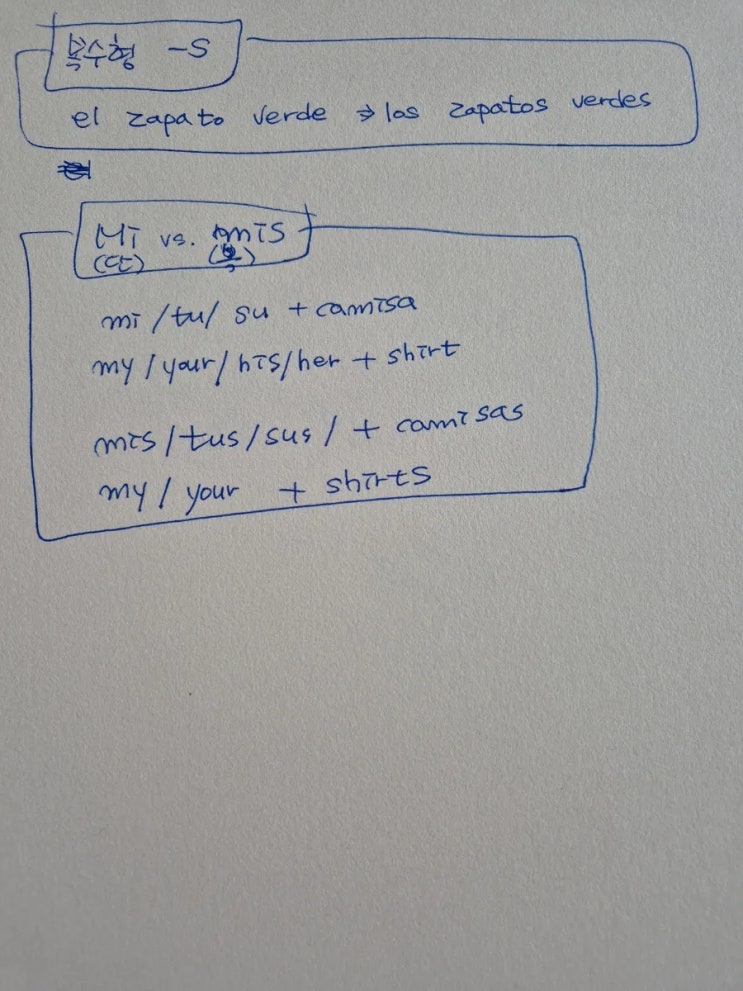 복수형 -S
el zapato verde ⇒ los zapatos verdes
Mi vs. mis
(단) (복)
mi / tu / su + camisa
my / your / his / her + shirt
mis / tus / sus / + camisas
my / your + shirts